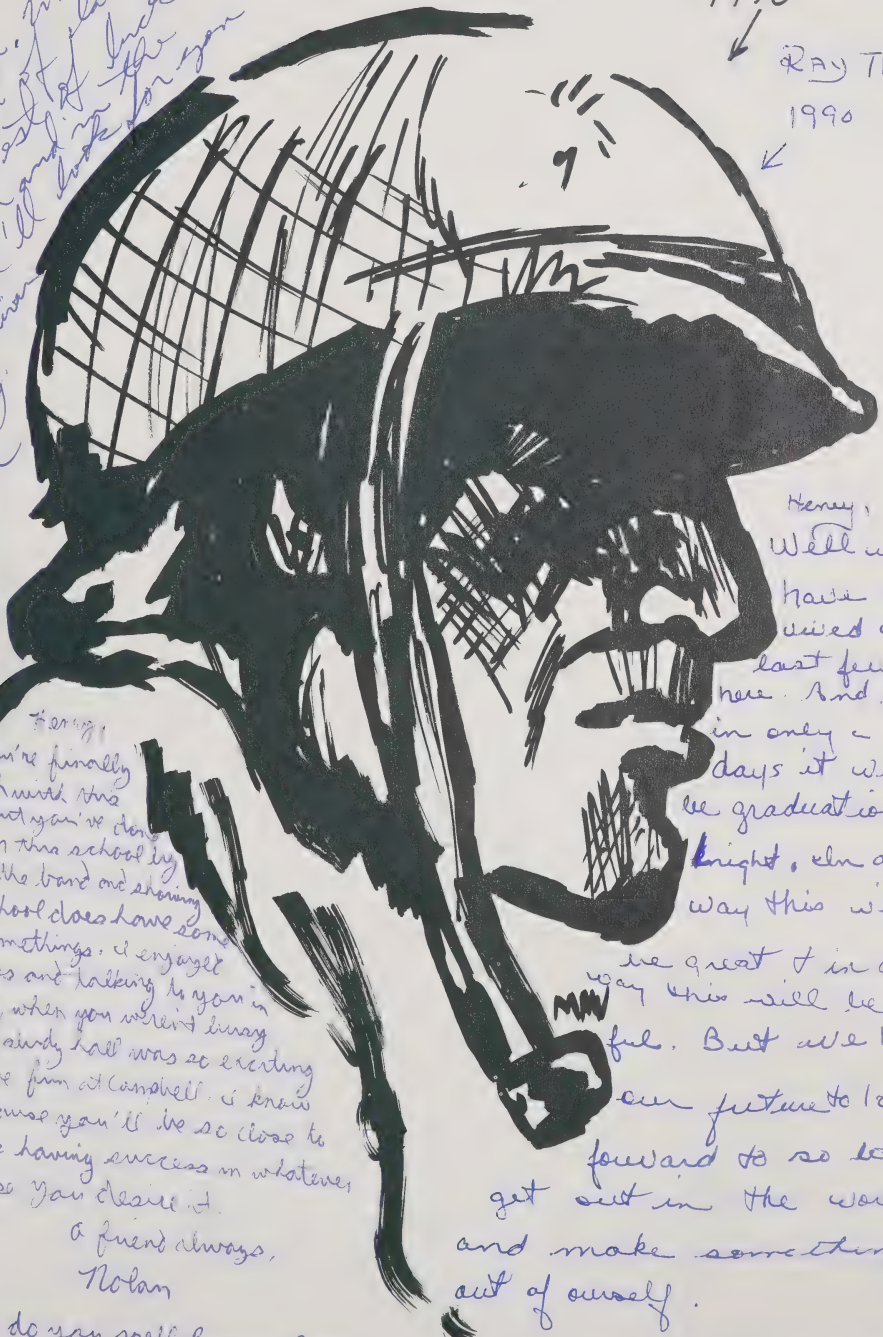 est of luck
and in the
'll look for you
1990
RAY T
1990
Henry,
Well w
have
vived
last few
here. And
in only a
days it w
be graduatio
knight. In a
way this w
be great & in a
way this will be
ful. But we h
our future to lo
forward to so le
get out in the wor
and make somethin
out of ourself.
Henry,
u're finally
h with this
ut you've done
n this school by
the band and showing
hool does have some
methings. I enjoyed
s and talking to you in
when you weren't busy
study hall was so exciting
ve fun at Campbell. I know
cause you'll be so close to
e having success in whatever
se you desire it.
A friend always,
Nolan
do you spell